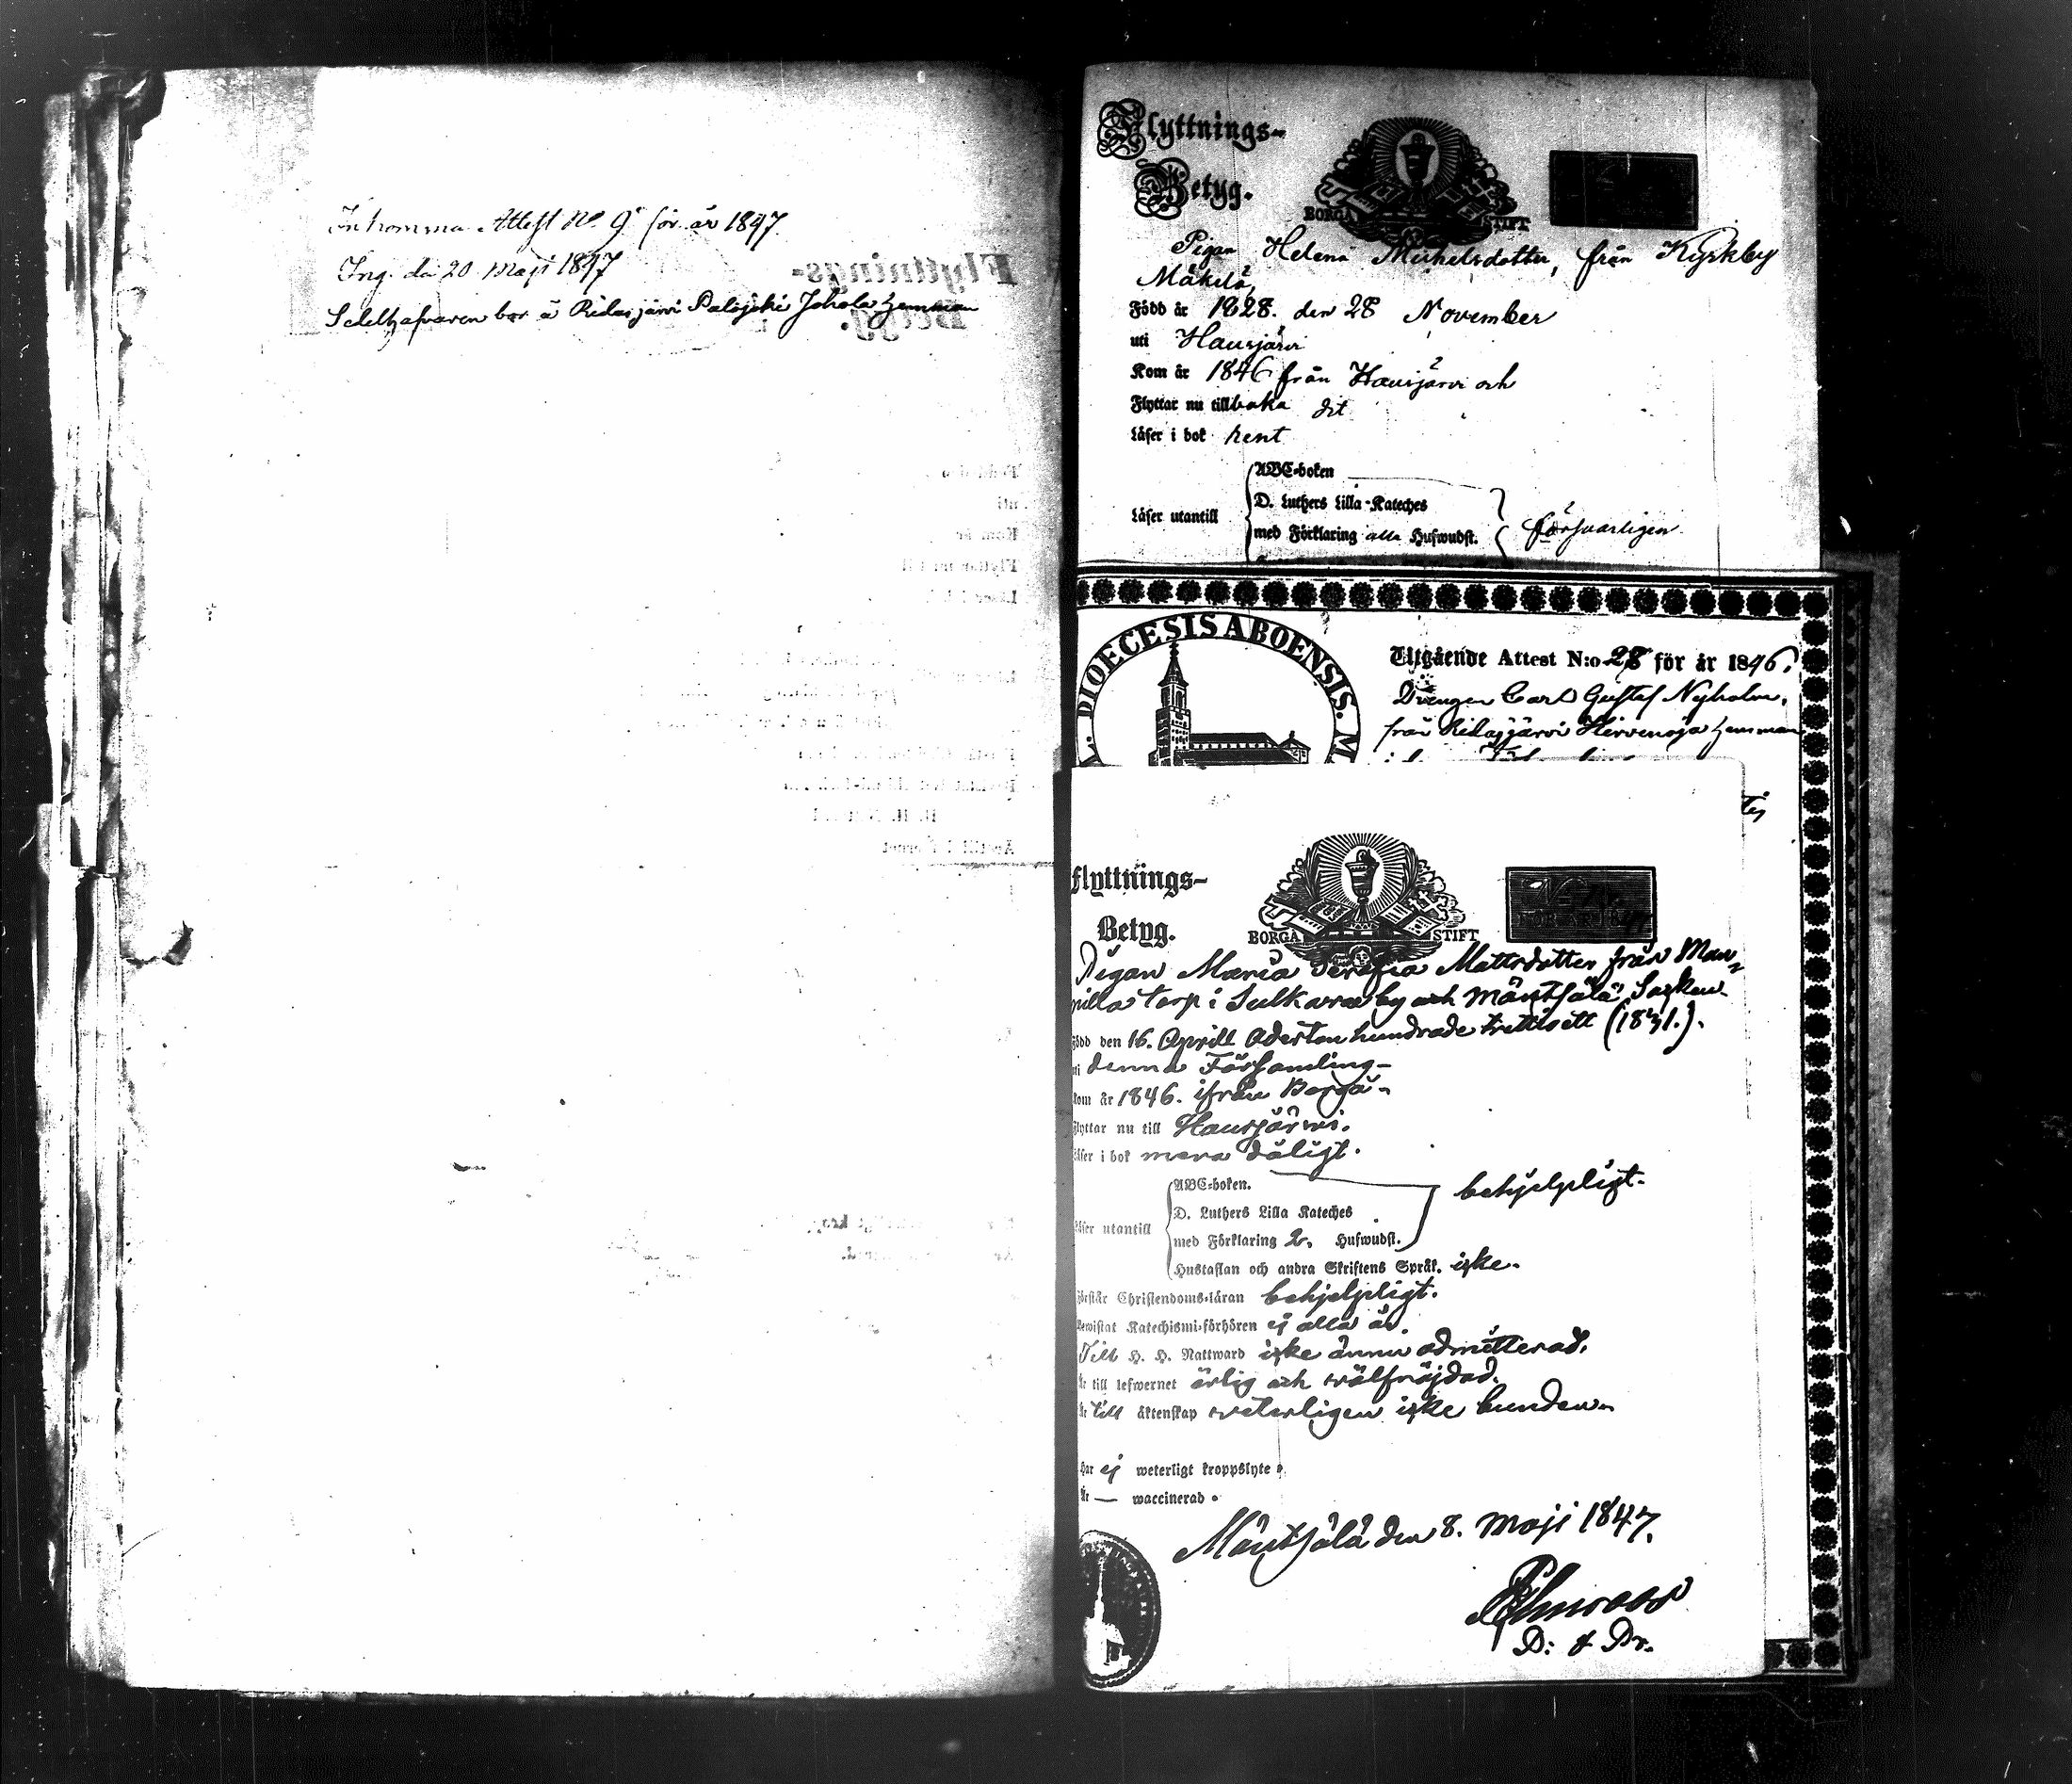 Inkomma Attest No 9 för år 1847
Ing. den 20 Maji 1847
Sedelhafvaren bor å Ridasjärvi Palojoki Johola hemman
Flyttnings-
Betyg.
BORGÅ STIFT
Pigan Helena Michelsdotter, från Kyrkby
Mäkelä,
Född år 1828. den 28 November
uti Hausjärvi
Kom år 1846 från Hausjärvi och
Flyttar nu tillbaka dit
Läser i bok rent
ABC-boken
D. Luthers Lilla-Kateches
Läser utantill
med Förklaring alla Hufwudst.
försvarligen
DIOECESIS ABOENSIS. M
Utgående Attest N:o 28 för år 1846.
Drengen Carl Gustaf Nyholm,
från Ridasjärvi Hirvenoja hemman
Flyttnings-
Betyg.
BORGÅ STIFT
Pigan Maria Serafia Mattsdotter från Man-
nilla torp i Sulkava by och Mäntsälä Socken
Född den 16. Aprill Adertonhundrade trettioett (1831.).
uti denna Församling
Kom år 1846. ifrån Borgå
Flyttar nu till Hausjärvi.
Läser i bok mera dåligt.
ABC-boken.
D. Luthers Lilla Kateches
Läser utantill
med Förklaring 2. Hufwudst.
behjelpligt.
Hustaflan och andra Skriftens Språk. icke.
Förstår Christendoms-läran behjelpligt.
Bewistat Katechismi-förhören ej alla år.
Till H. H. Nattward icke ännu admitterad.
Är till lefwernet ärlig och wälfräjdad.
Är till äktenskap veterligen icke bunden.
Har ej weterligt kroppslyte.
Är — waccinerad.
Mäntsälä den 8. Maji 1847.